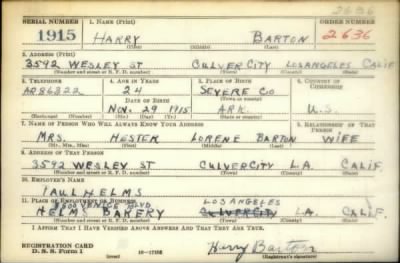 2636
SERIAL NUMBER 1. NAME (Print) ORDER NUMBER
1915 HARRY BARTON 2636
(First) (Middle) (Last)
2. ADDRESS (Print)
3592 WESLEY ST CULVER CITY LOS ANGELES CALIF.
(Number and street or R. F. D. number) (Town) (County) (State)
3. TELEPHONE 4. AGE IN YEARS 5. PLACE OF BIRTH 6. COUNTRY OF CITIZENSHIP
24 SEVERE CO
DATE OF BIRTH (Town or county)
NOV. 29 1915 ARK. U.S.
(Exchange) (Number) (Mo.) (Day) (Yr.) (State or country)
7. NAME OF PERSON WHO WILL ALWAYS KNOW YOUR ADDRESS 8. RELATIONSHIP OF THAT PERSON
MRS. HESTER LORENE BARTON WIFE
(Mr., Mrs., Miss) (First) (Middle) (Last)
9. ADDRESS OF THAT PERSON
3592 WESLEY ST CULVER CITY L.A. CALIF.
(Number and street or R. F. D. number) (Town) (County) (State)
10. EMPLOYER'S NAME
PAUL HELMS
11. PLACE OF EMPLOYMENT OR BUSINESS
VENICE BLVD LOS ANGELES
HELMS BAKERY CULVER CITY L.A. CALIF.
(Number and street or R. F. D. number) (Town) (County) (State)
I AFFIRM THAT I HAVE VERIFIED ABOVE ANSWERS AND THAT THEY ARE TRUE.
REGISTRATION CARD
D. S. S. Form 1 Harry Barton
(Registrant's signature)